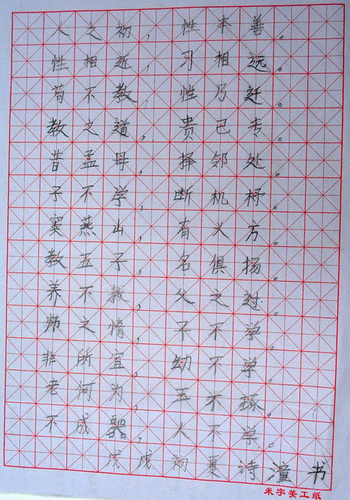 人之初，性本善。
性相近，习相远。
苟不教，性乃迁。
教之道，贵已专。
昔孟母，择邻处。
子不学，断机杼。
窦燕山，有义方。
教五子，名俱扬。
养不教，父之过。
师之惰，子不学。
非所宜，幼不学。
老何为，玉不琢。
不成器，人不学。
戊戌初夏诗潼书
米字美工纸